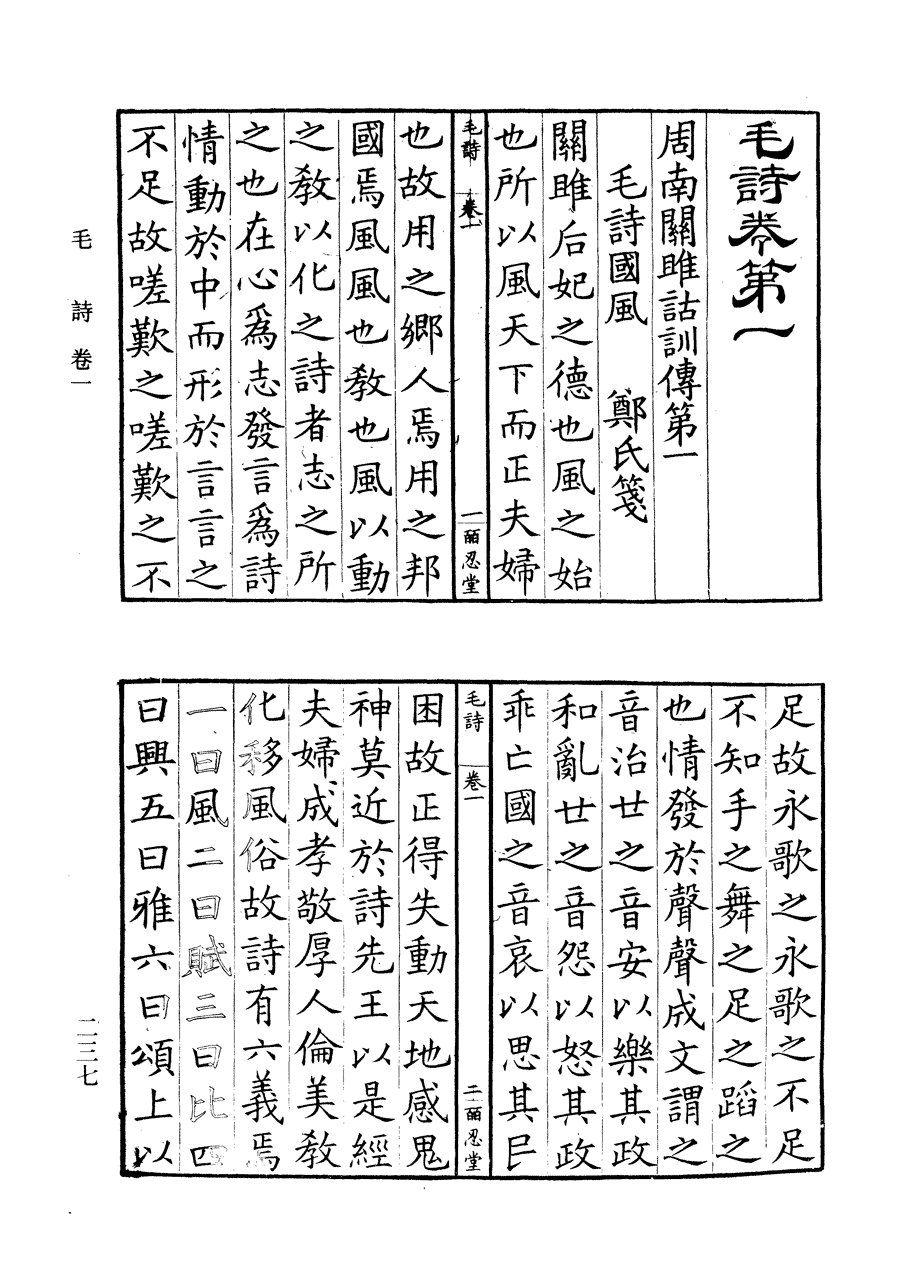 毛詩卷第一
周南關雎詁訓傳第一
毛詩國風　鄭氏箋
關雎后妃之德也風之始
也所以風天下而正夫婦
毛詩　卷一　一　皕忍堂
也故用之鄉人焉用之邦
國焉風風也教也風以動
之教以化之詩者志之所
之也在心爲志發言爲詩
情動於中而形於言言之
不足故嗟歎之嗟歎之不
毛詩卷一
足故永歌之永歌之不足
不知手之舞之足之蹈之
也情發於聲聲成文謂之
音治廿之音安以樂其政
和亂廿之音怨以怒其政
乖亡國之音哀以思其民
毛詩　卷一　二　皕忍堂
困故正得失動天地感鬼
神莫近於詩先王以是經
夫婦成孝敬厚人倫美教
化移風俗故詩有六義焉
一曰風二曰賦三曰比四
曰興五曰雅六曰頌上以
二三七